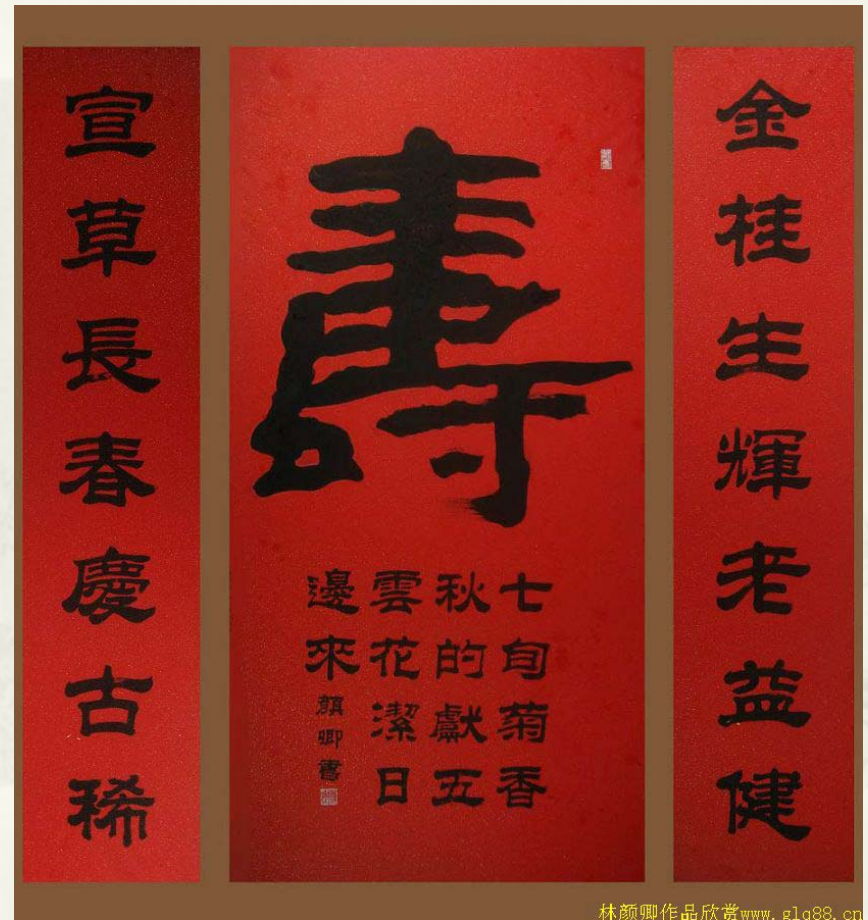 金桂生輝老益健
壽
七旬菊香
秋的獻五
雲花潔日
邊來
顏卿書
宣草長春慶古稀
林颜卿作品欣赏www.glq88.cn